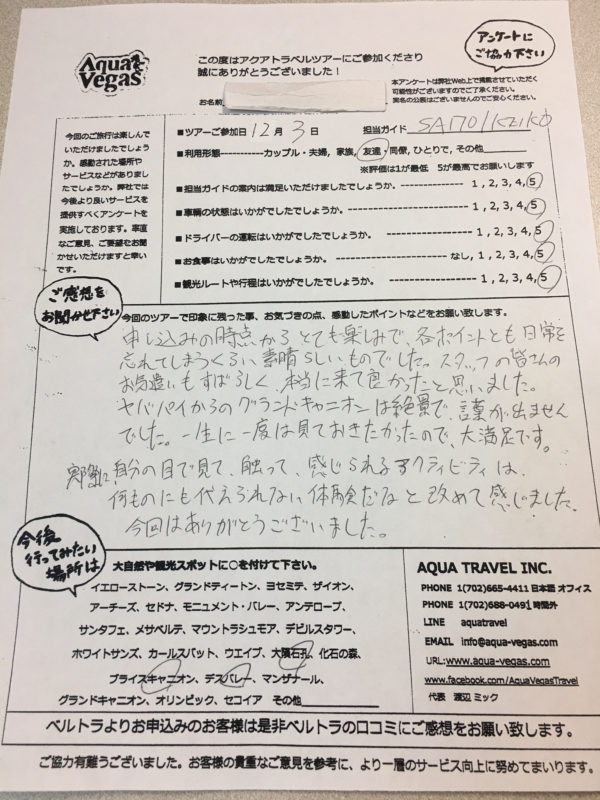 Aqua Vegas
この度はアクアトラベルツアーにご参加くださり
誠にありがとうございました！
アンケートに
ご協力下さい
本アンケートは弊社Web上で掲載させていただく
可能性がございますのでご了承ください。
実名の公表はございませんのでご安心ください。
お名前
今回のご旅行は楽しんで
いただけましたでしょう
か。感動された場所や
サービスなどがありまし
たでしょうか。弊社では
今後より良いサービスを
提供すべくアンケートを
実施しております。率直
なご意見、ご要望をお聞
かせいただけますと幸い
です。
■ツアーご参加日 12 月 3 日 担当ガイド SAITO/KEIKO
■利用形態------------カップル・夫婦, 家族, 友達・同僚, ひとりで, その他
※評価は1が最低 5が最高でお願いします
■担当ガイドの案内は満足いただけましたでしょうか。---------------- 1 , 2, 3, 4, 5
■車輌の状態はいかがでしたでしょうか。------------------------ 1 , 2, 3, 4, 5
■ドライバーの運転はいかがでしたでしょうか。------------------- 1 , 2, 3, 4, 5
■お食事はいかがでしたでしょうか。---------------------- なし, 1, 2, 3, 4, 5
■観光ルートや行程はいかがでしたでしょうか。------------------- 1 , 2, 3, 4, 5
ご感想を
お聞かせ下さい
今回のツアーで印象に残った事、お気づきの点、感動したポイントなどをお願い致します。
申し込みの時点からとても楽しみで、各ポイントとも日常を
忘れてしまうくらい素晴らしいものでした。スタッフの皆さんの
お気遣いもすばらしく、本当に来て良かったと思いました。
ヤバパイからのグランドキャニオンは絶景で、言葉が出ません
でした。一生に一度は見ておきたかったので、大満足です。
実際に自分の目で見て、触って、感じられるアクティビティは、
何ものにも代えられない体験だなと改めて感じました。
今回はありがとうございました。
今後
行ってみたい
場所は
大自然や観光スポットに○を付けて下さい。
イエローストーン、グランドティートン、ヨセミテ、ザイオン、
アーチーズ、セドナ、モニュメント・バレー、アンテロープ、
サンタフェ、メサベルテ、マウントラシュモア、デビルスタワー、
ホワイトサンズ、カールスバット、ウエイブ、大隕石孔、化石の森、
ブライスキャニオン、デスバレー、マンザナール、
グランドキャニオン、オリンピック、セコイア その他
AQUA TRAVEL INC.
PHONE 1(702)665-4411 日本語 オフィス
PHONE 1(702)688-0491 時間外
LINE aquatravel
EMAIL info@aqua-vegas.com
URL:www.aqua-vegas.com
www.facebook.com/AquaVegasTravel
代表 渡辺 ミック
ベルトラよりお申込みのお客様は是非ベルトラの口コミにご感想をお願い致します。
ご協力有難うございました。お客様の貴重なご意見を参考に、より一層のサービス向上に努めてまいります。